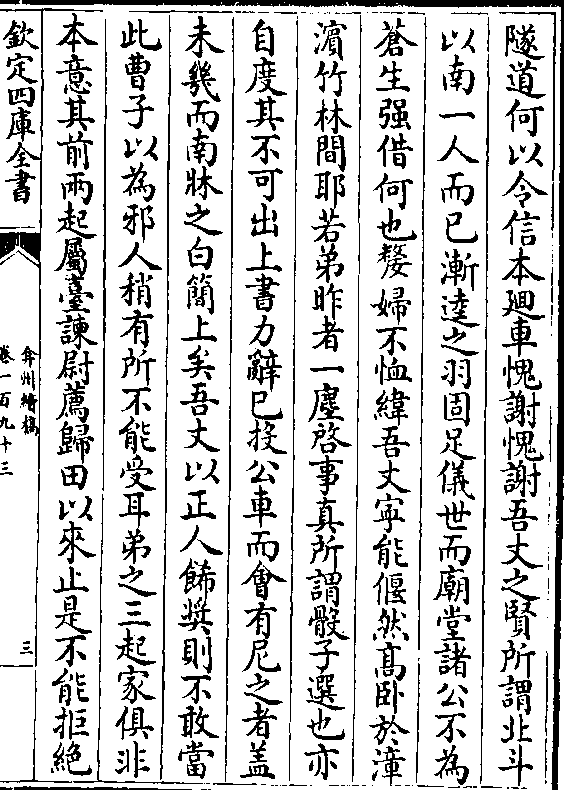 隧道何以令信本迴車愧謝愧謝吾丈之賢所謂北斗
以南一人而已漸逵之羽固足儀世而廟堂諸公不為
蒼生强借何也嫠婦不恤緯吾丈寜能偃然髙卧於漳
濵竹林間耶若弟昨者一塵啓事真所謂骰子選也亦
自度其不可出上書力辭已投公車而㑹有尼之者盖
未㡬而南牀之白簡上矣吾丈以正人餙奨則不敢當
此曹子以為邪人稍有所不能受耳弟之三起家俱非
本意其前兩起屬臺諫尉薦歸田以來止是不能拒絶
欽定四庫全書
弇州續稿
卷一百九十三
三